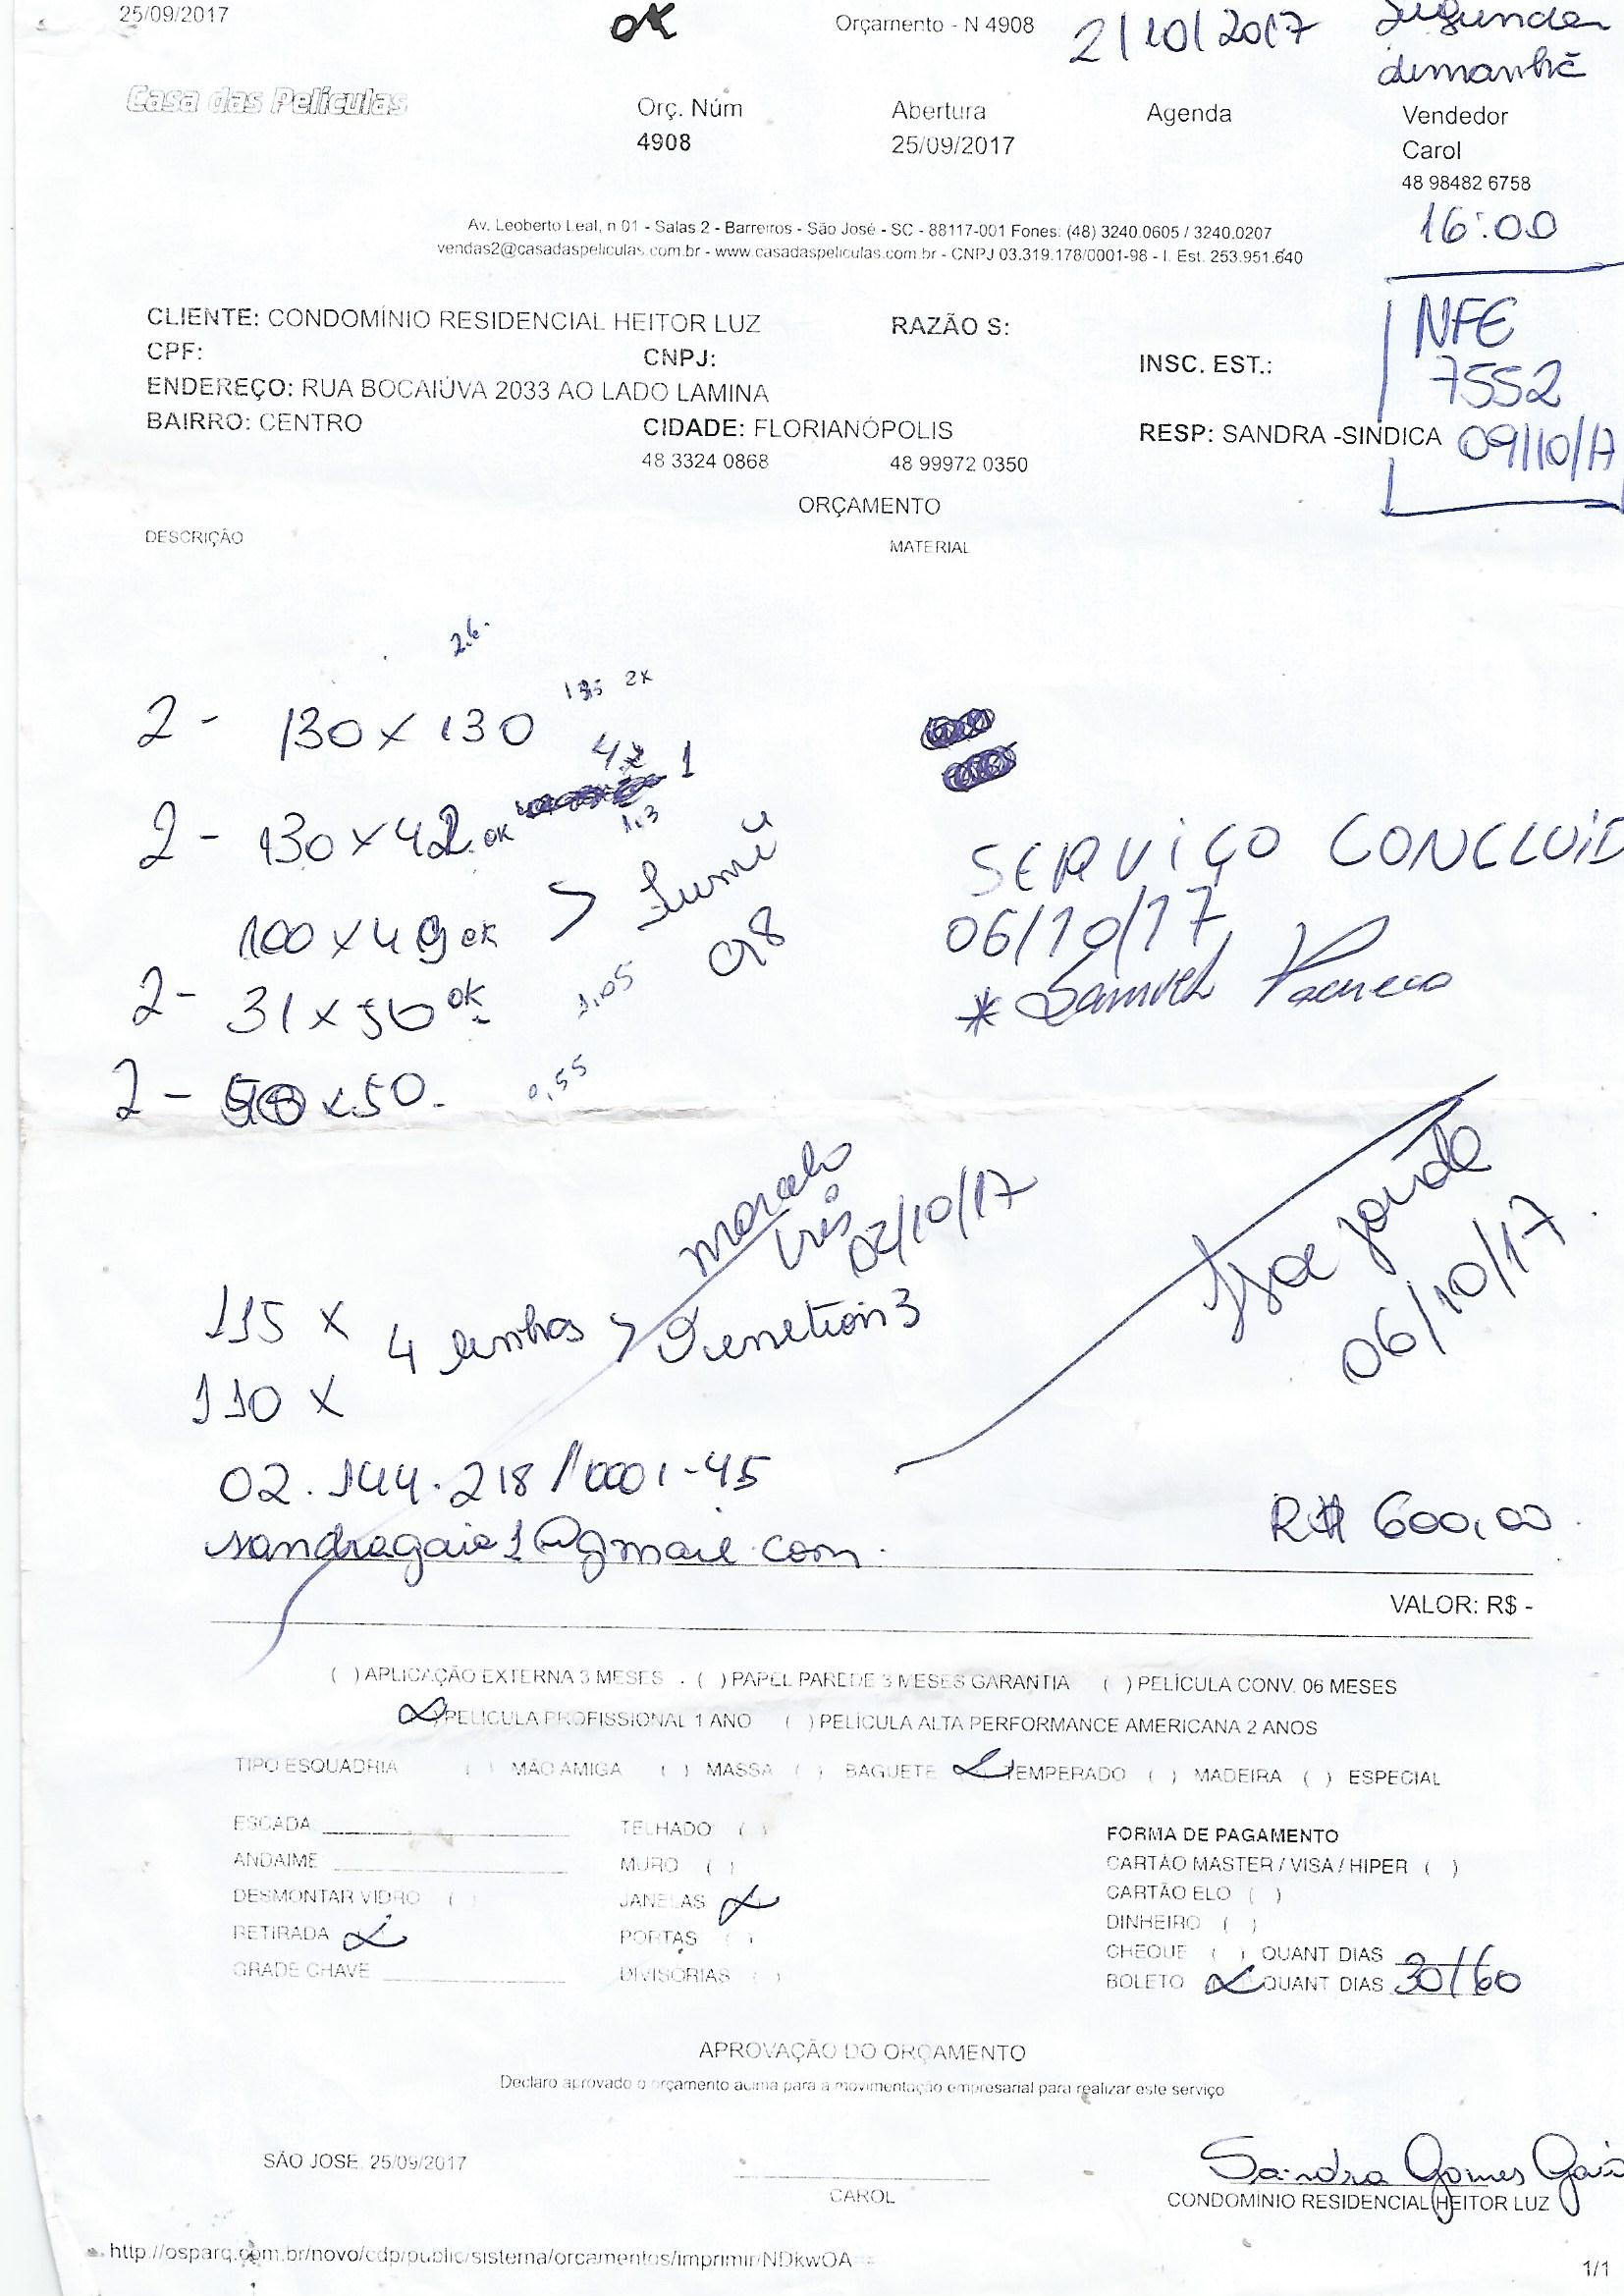 25/09/2017 OK Orçamento - N 4908 2/10/2017 Segunda
demanhã
Casa das Películas
Orç. Núm Abertura Agenda Vendedor
4908 25/09/2017 Carol
48 98482 6758
16:00
Av. Leoberto Leal, n 01 - Salas 2 - Barreiros - São José - SC - 88117-001 Fones: (48) 3240.0605 / 3240.0207
vendas2@casadaspeliculas.com.br - www.casadaspeliculas.com.br - CNPJ 03.319.178/0001-98 - I. Est. 253.951.640
NFE
7552
09/10/17
CLIENTE: CONDOMÍNIO RESIDENCIAL HEITOR LUZ RAZÃO S:
CPF: CNPJ: INSC. EST.:
ENDEREÇO: RUA BOCAIÚVA 2033 AO LADO LAMINA
BAIRRO: CENTRO CIDADE: FLORIANÓPOLIS RESP: SANDRA -SINDICA
48 3324 0868 48 99972 0350
ORÇAMENTO
DESCRIÇÃO MATERIAL
2.6.
2 - 130 x 130 2x
2 - 130 x 42 ok 1
1.3
100 x 49 ok >
2 - 31 x 50 ok 1,05
2 - x 50. 0,55
SERVIÇO CONCLUID
06/10/17
* Samuel Pacheco
02/10/17
06/10/17
115 x
4 >
110 x
02.144.218/0001-45
sandragaia1@gmail.com.
R$ 600,00
VALOR: R$ -
( ) APLICAÇÃO EXTERNA 3 MESES . ( ) PAPEL PAREDE 3 MESES GARANTIA ( ) PELÍCULA CONV. 06 MESES
(X) PELICULA PROFISSIONAL 1 ANO ( ) PELÍCULA ALTA PERFORMANCE AMERICANA 2 ANOS
TIPO ESQUADRIA ( ) MÃO AMIGA ( ) MASSA ( ) BAGUETE (X) TEMPERADO ( ) MADEIRA ( ) ESPECIAL
ESCADA ____ TELHADO ( ) FORMA DE PAGAMENTO
ANDAIME ____ MURO ( ) CARTÃO MASTER / VISA / HIPER ( )
DESMONTAR VIDRO ( ) JANELAS X CARTÃO ELO ( )
RETIRADA X PORTAS ( ) DINHEIRO ( )
GRADE CHAVE ____ DIVISÓRIAS ( ) CHEQUE ( ) QUANT DIAS ____
BOLETO X QUANT DIAS 30/60
APROVAÇÃO DO ORÇAMENTO
Declaro aprovado o orçamento acima para a movimentação empresarial para realizar este serviço
SÃO JOSE, 25/09/2017 Sandra Gomes Gaia
CAROL CONDOMÍNIO RESIDENCIAL HEITOR LUZ
http://osparq.com.br/novo/cdp/public/sistema/orcamentos/imprimir/NDkwOA== 1/1